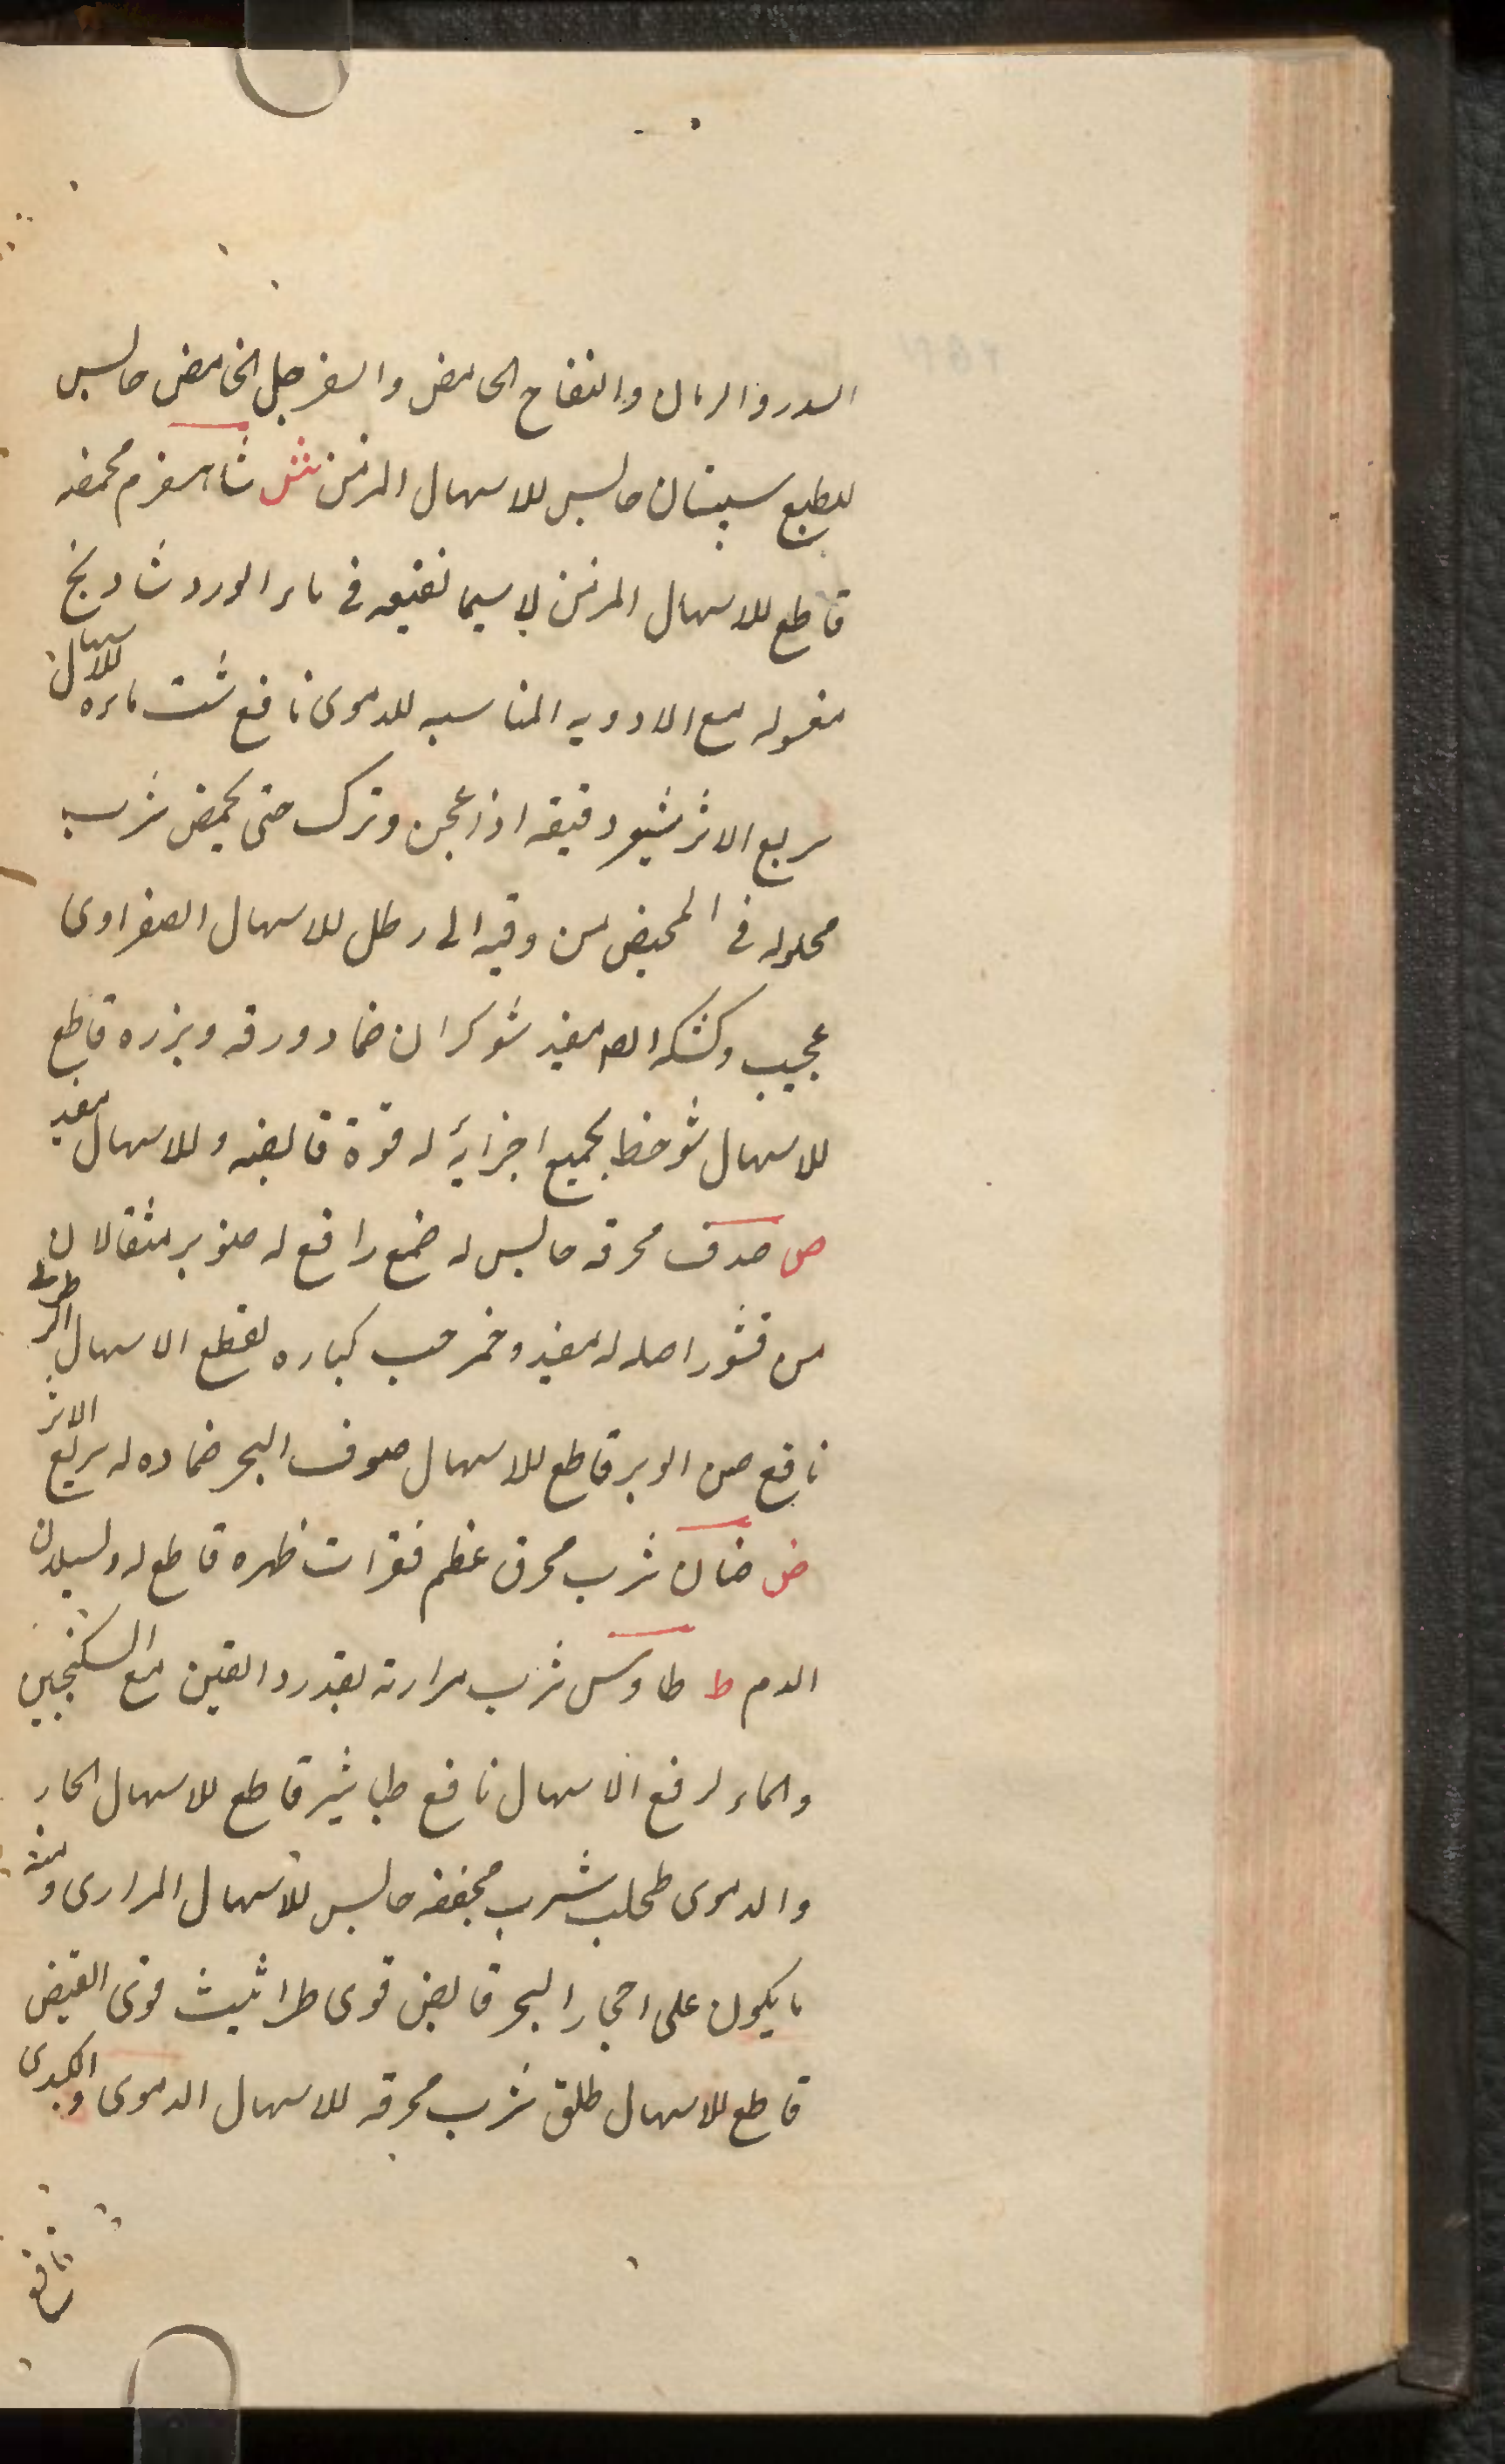 السدر والرمان والتفاح الحامض والسفرجل الحامض حابس
للطبع سبستان حابس للاسهال المزمن ش شاهسفرم محمصه
قاطع للاسهال المزمن لا سيما نقيعه فى ماء الورد شادنج
مغسوله مع الادويه المناسبه للدموى نافع شت ماءه للاسهال
سريع الاثر شعير دقيقه اذا عجن وترك حتى يحمض شرب
محلوله فى المخيض من وقيه الى رطل للاسهال الصفراوى
عجيب وكشكه مفيد شوكران ضماد ورقه وبزره قاطع
للاسهال شوحط بجميع اجزائه له قوة قابضه وللاسهال مفيد
ص صدف محرقه حابس له ضمغ رافع له صنوبر مثقالان
من قشور اصله له مفيد وخمر حب كباره لقطع الاسهال
نافع صن الوبر قاطع للاسهال صوف البحر ضماده له سريع الاثر
ض ضان شرب محرق عظم فقرات ظهره قاطع له ولسيلان
الدم ط طاوس شرب مرارته بقدر دانقين مع السكنجبين
والماء لرفع الاسهال نافع طباشير قاطع للاسهال الحار
والدموى طحلب شرب مجففه حابس للاسهال المرارى ومنه
ما يكون على احجار البحر قابض قوى طراثيث قوى القبض
قاطع للاسهال طلق شرب محرقه للاسهال الدموى والكبدى
نافع